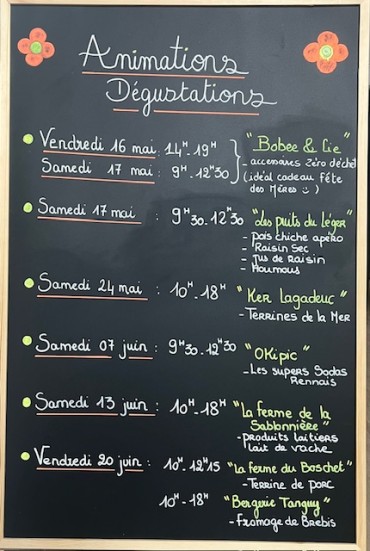 Animations
Dégustations
Vendredi 16 mai : 14H-19H "Bobee & Cie"
- accessoires zéro déchet
Samedi 17 mai : 9H-12H30 (idéal cadeau fête
des Mères :)
Samedi 17 mai : 9H30-12H30 "Les puits du Léger"
- Pois chiche apéro
- Raisin Sec
- Jus de Raisin
- Houmous
Samedi 24 mai : 10H-18H "Ker Lagadeuc"
- Terrines de la Mer
Samedi 07 juin : 9H30-12H30 "OKipic"
- Les supers Sodas
Rennais
Samedi 13 juin : 10H-18H "La ferme de la
Sablonnière"
- produits laitiers
lait de vache
Vendredi 20 juin : 10H-12H15 "La ferme du Boschet"
- Terrine de porc
10H-18H "Bergerie Tanguy"
- Fromage de Brebis